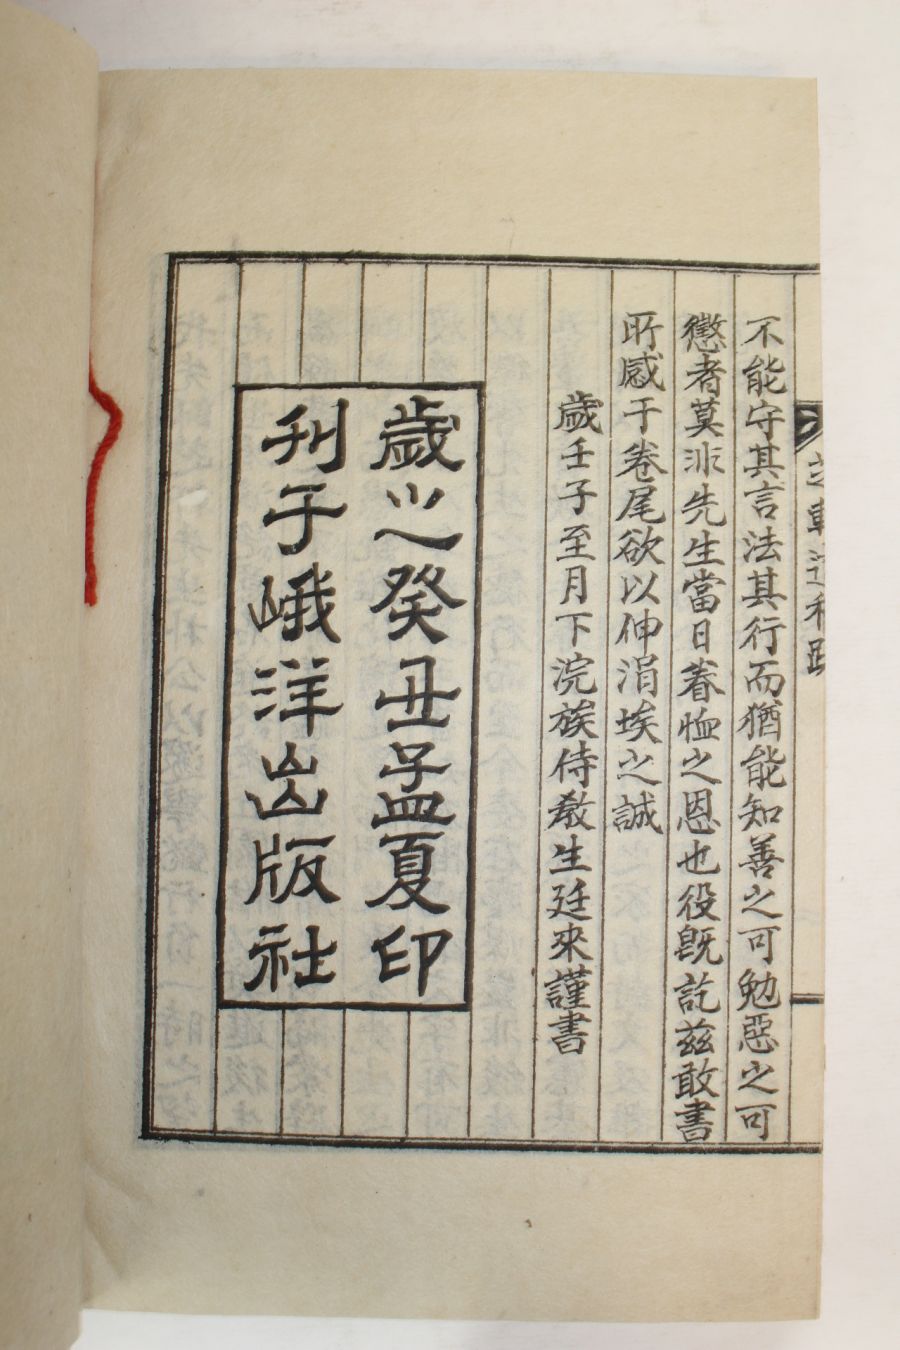 不能守其言法其行而猶能知善之可勉惡之可
懲者莫非先生當日眷恤之恩也役旣訖玆敢書
所感于卷尾欲以伸涓埃之誠
歲壬子至月下浣族侍敎生廷來謹書
歲之癸丑孟夏印
刊于峨洋出版社